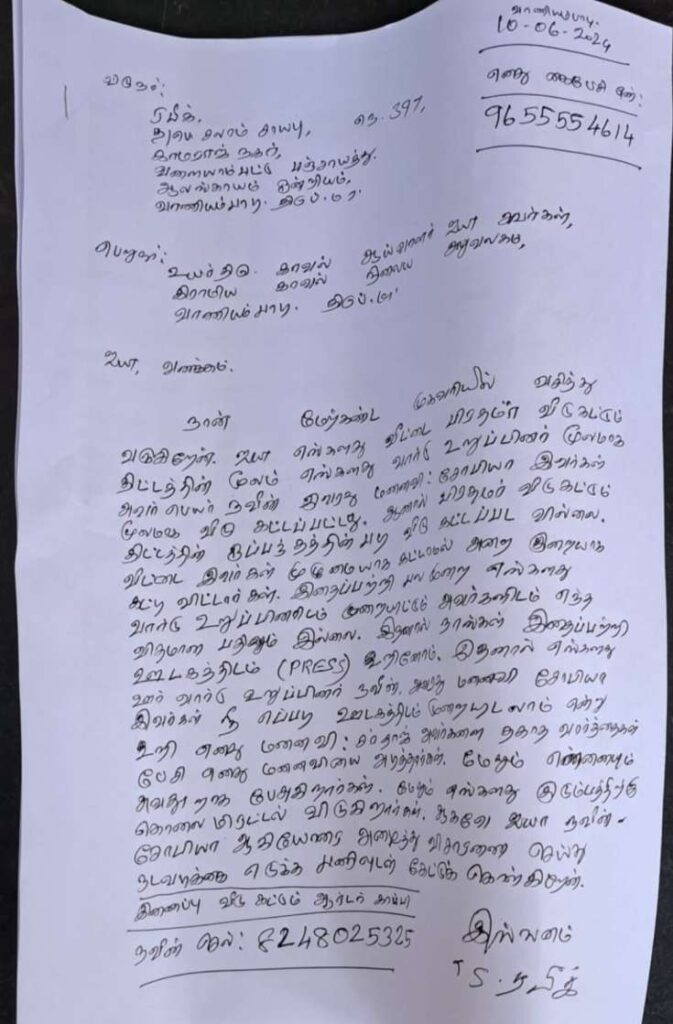 வாணியம்பாடி.
10-06-2024
எனது கைபேசி எண்:
9655554614
அனுநர்:
ரபீக்,
த/பெ சலாம் சாயபு, நெ. 397,
காமராஜ் நகர்,
வளையாம்பட்டு பஞ்சாயத்து.
ஆலங்காயம் ஒன்றியம்,
வாணியம்பாடி. திருப். மா.
பெறுநர்:
உயர்திரு. காவல் ஆய்வாளர் ஐயா அவர்கள்,
கிராமிய காவல் நிலைய அலுவலகம,
வாணியம்பாடி. திருப். மா.
ஐயா, வணக்கம்.
நான் மேற்கண்ட முகவரியில் வசித்து
வருகிறேன். ஐயா எங்களது வீட்டை பிரதமர் வீடு கட்டும்
திட்டத்தின் மூலம் எங்களது வார்டு உறுப்பினர் மூலமாக
அவர் பெயர் நவீன் இவரது மனைவி: சோபியா இவர்கள்
மூலமாக வீடு கட்டப்பட்டது. ஆனால் பிரதமர் வீடு கட்டும்
திட்டத்தின் ஒப்பந்தத்தின் படி வீடு கட்டப்பட வில்லை.
வீட்டை இவர்கள் முழுமையாக கட்டாமல் அறை குறையாக
கட்டி விட்டார்கள். இதைப்பற்றி பல முறை எங்களது
வார்டு உறுப்பினரிடம் முறையிட்டும் அவர்களிடம் எந்த
விதமான பதிலும் இல்லை. இதனால் நாங்கள் இதைப்பற்றி
ஊடகத்திடம் (PRESS) கூறினோம். இதனால் எங்களது
ஊர் வார்டு உறுப்பினர் நவீன், அவரது மனைவி சோபியா
இவர்கள் நீ எப்படி ஊடகத்திடம் முறையிடலாம் என்று
கூறி எனது மனைவி: அவர்களை தகாத வார்த்தைகள்
பேசி எனது மனைவியை அடித்தார்கள். மேலும் என்னையும்
அவதூறாக பேசுகிறார்கள். மேலும் எங்களது குடும்பத்திற்கு
கொலை மிரட்டல் விடுகிறார்கள். ஆகவே ஐயா நவீன் -
சோபியா ஆகியோரை அழைத்து விசாரணை செய்து
நடவடிக்கை எடுக்க பணிவுடன் கேட்டுக் கொண்கிறேன்.
இணைப்பு வீடு கட்டும் ஆர்டர் காப்பி
நவீன் செல்: 8248025325
இவ்வனம்
S. ரபீக்